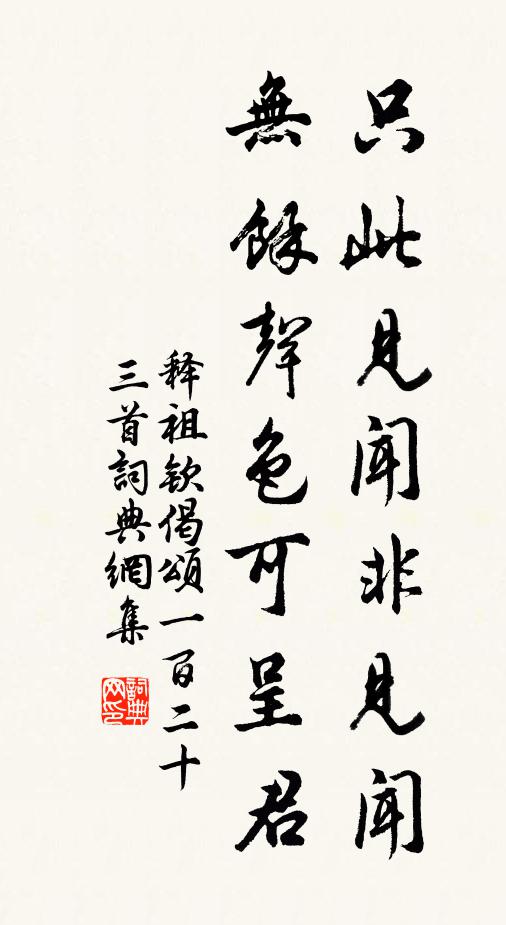 只此見聞非見聞
無餘聲色可呈君
释祖钦偈頌一百二十
三首詞典網集
詞典
网印